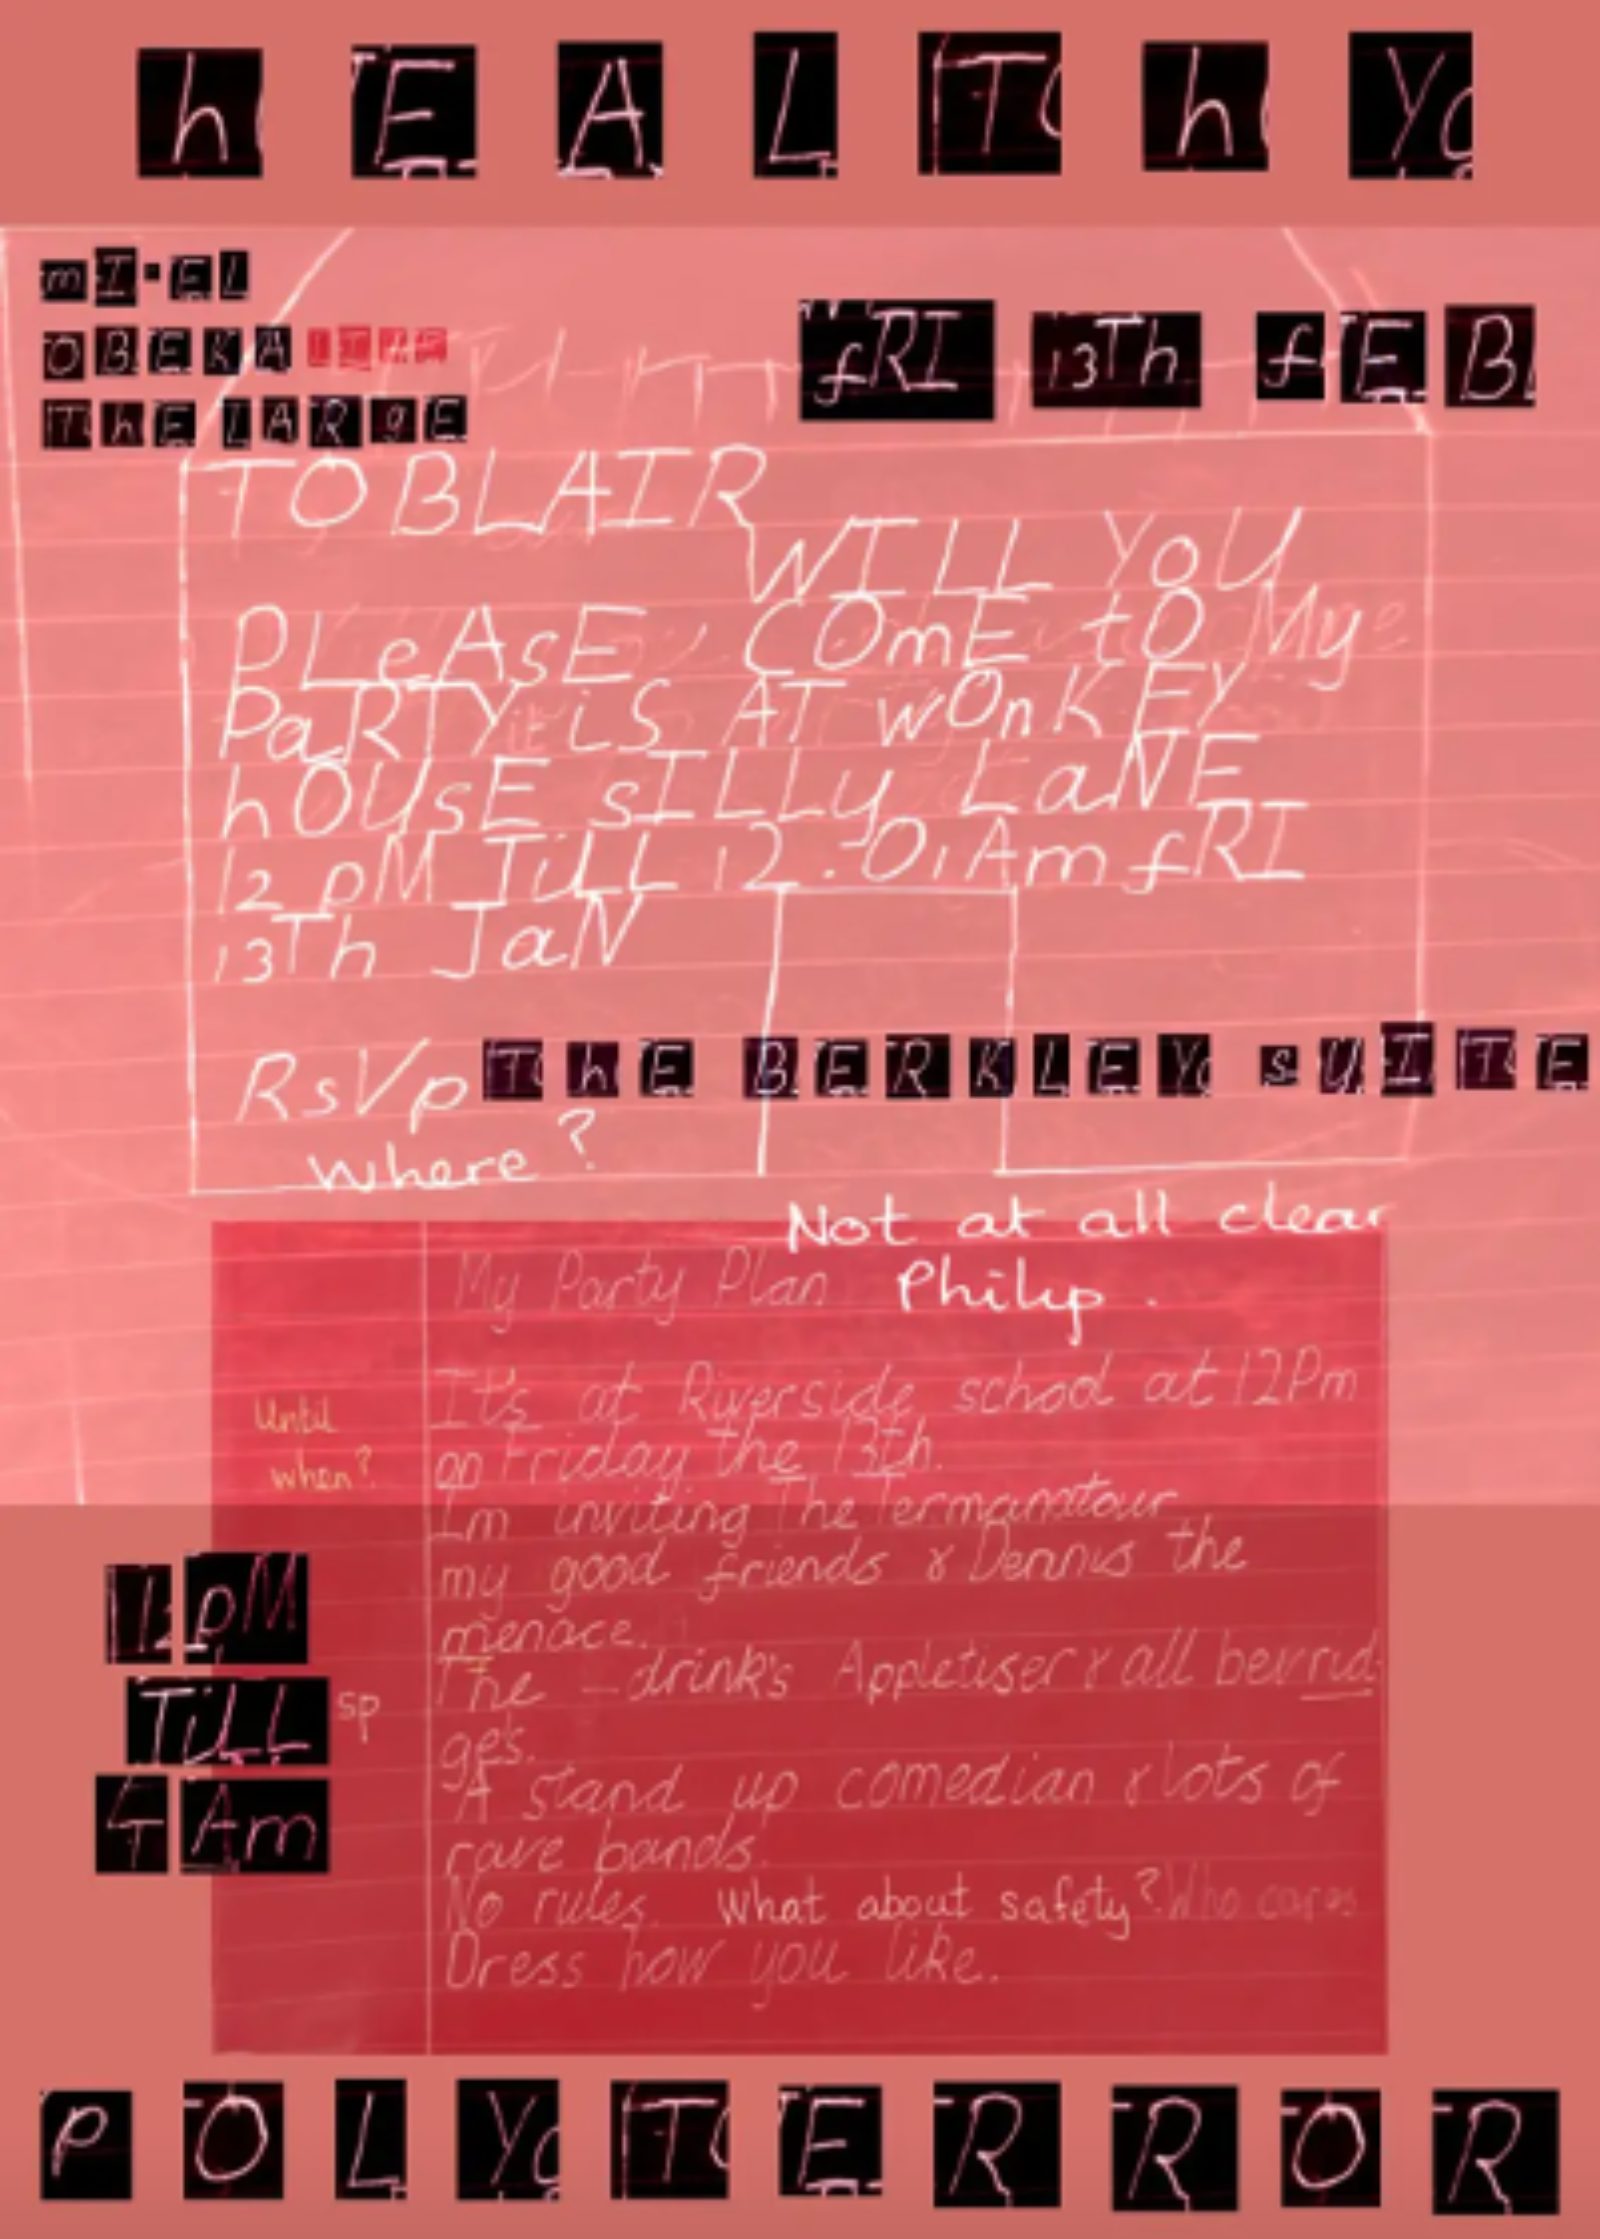 hEALThY
mI-EL
OBEKA
ThE LARgE
fRI 13Th fEB
TO BLAIR
WILL YoU
pLeAsE COmE tO My
PaRTY iS AT wOnKEY
hOUsE sILLy LaNE
12 pM TiLL 12.01Am fRI
13Th JaN
RsVp ThE BERKLEY sUITE
where?
Not at all clear
Philip.
My Party Plan
It's at Riverside school at 12Pm
on Friday the 13th.
Until when?
Im inviting The Termanatour
my good friends & Dennis the
menace.
The - drink's Appletiser & all bevrid-
ge's.
sp
A stand up comedian & lots of
rave bands.
No rules. What about safety? Who cares
Dress how you like.
11pM
TiLL
4Am
pOLYTERROR